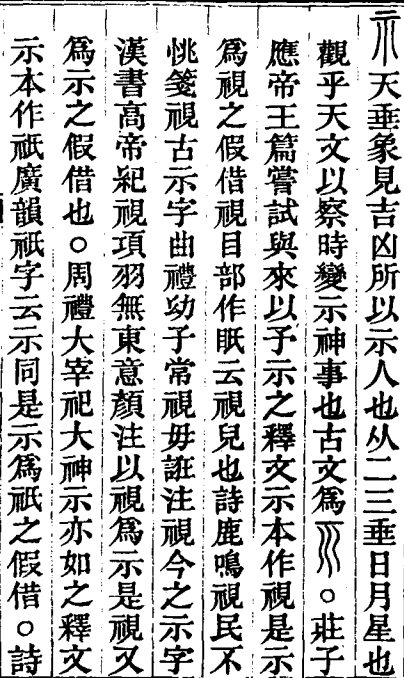 示天垂象見吉凶所以示人也从二三垂日月星也
觀乎天文以察時變示神事也古文爲○莊子
應帝王篇嘗試與來以予示之釋文示本作視是示
爲視之假借視目部作眂云視皃也詩鹿鳴視民不
恌箋視古示字曲禮幼子常視毋誑注視今之示字
漢書高帝紀視項羽無東意顏注以視爲示是視又
爲示之假借也○周禮大宰祀大神示亦如之釋文
示本作祇廣韻祇字云示同是示爲祇之假借○詩